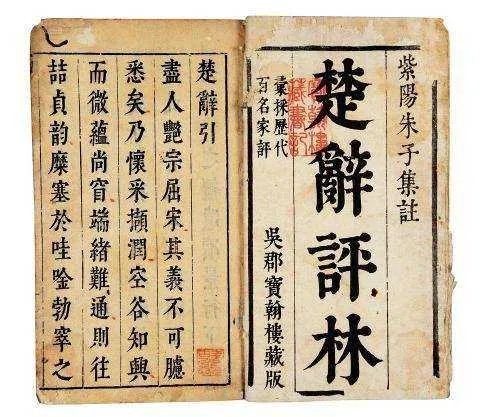 紫陽朱子集註
楚辭評林
彚採歷代
百名家評
吳郡寶翰樓藏版
楚辭引
盡人艷宗屈宋其義不可臆
悉矣乃懷采擷潤空谷知興
而微蘊尚窅端緒難通則往
喆貞韵糜塞於哇唫勃窣之